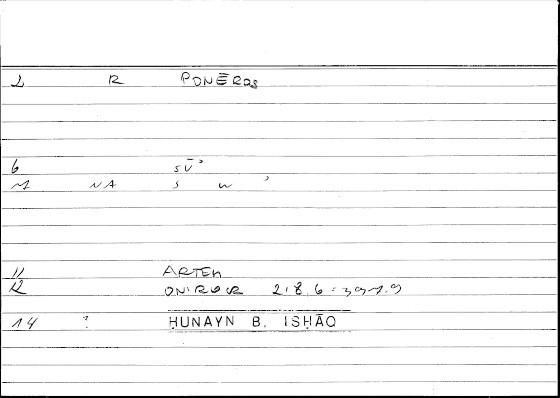 2 R PONĒROS
6 sū'
M NA s w '
11 ARTEM
12 ONIROCR 2:8,6 = 397.9
14 ? ḤUNAYN B. ISḤĀQ